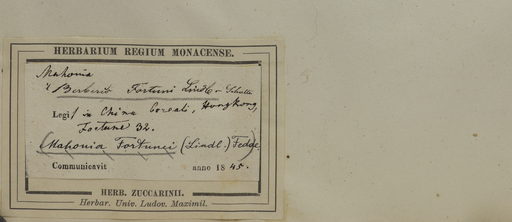 HERBARIUM REGIUM MONACENSE.
Mahonia
Berberis Fortuni Lindl
Legit in China boreali, Hongkong,
Fortune 32.
(Mahonia Fortunei (Lindl.) Fedde)
Communicavit anno 1845.
HERB. ZUCCARINII.
Herbar. Univ. Ludov. Maximil.